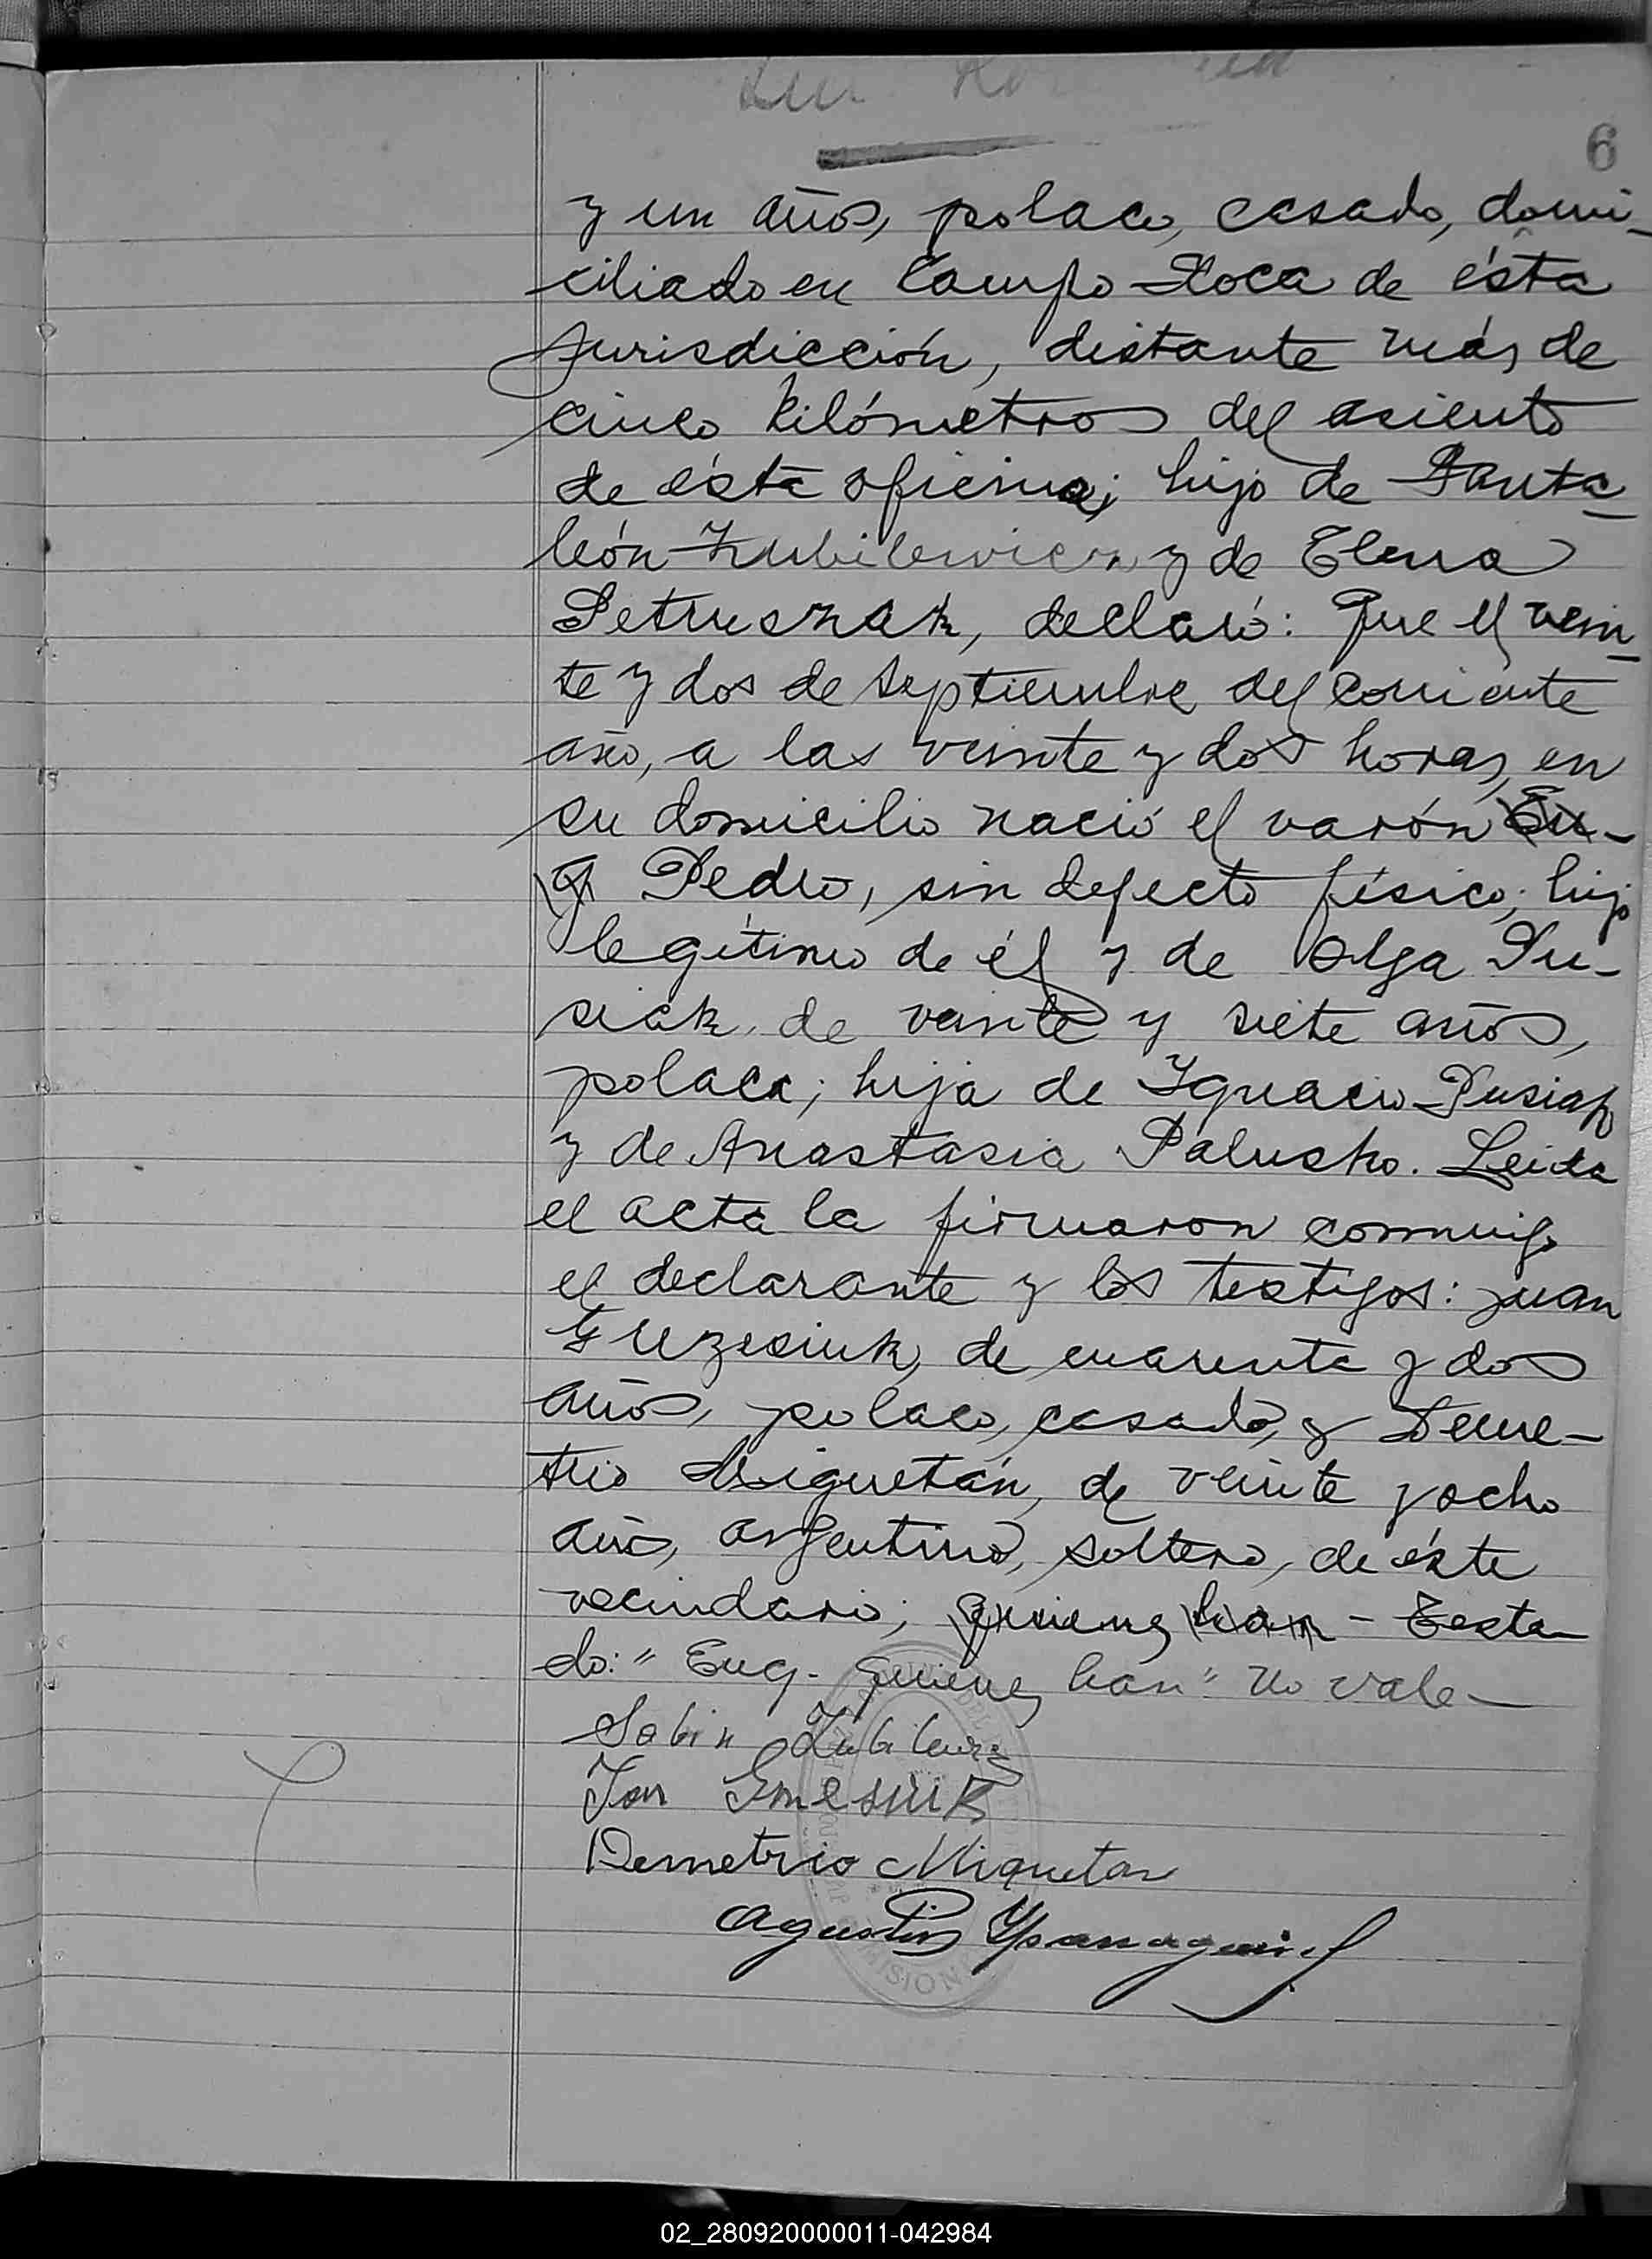 6
y un años, polaco, casado, domi-
ciliado en Campo Roca de ésta
Jurisdicción, distante más de
cinco kilómetros del asiento
de ésta oficina; hijo de Panta-
león Zubilewicz y de Elena
Petruszak, declaró: Que el vein-
te y dos de Septiembre del corriente
año, a las veinte y dos horas, en
su domicilio nació el varón Eu-
g Pedro, sin defecto físico; hijo
legítimo de él y de Olga Pu-
siak, de veinte y siete años,
polaca; hija de Ignacio Pusiak
y de Anastasia Palusko. Leida
el acta la firmaron conmigo
el declarante y los testigos: Juan
de cuarenta y dos
años, polaco, casado, y Deme-
trio Miquetán, de veinte y ocho
años, argentino, soltero, de éste
vecindario; quienes han - Testa-
do: "Eug. quienes han" no vale-
Sabin
Jan
Demetrio Miquetan
Agustin
MISION
02_280920000011-042984